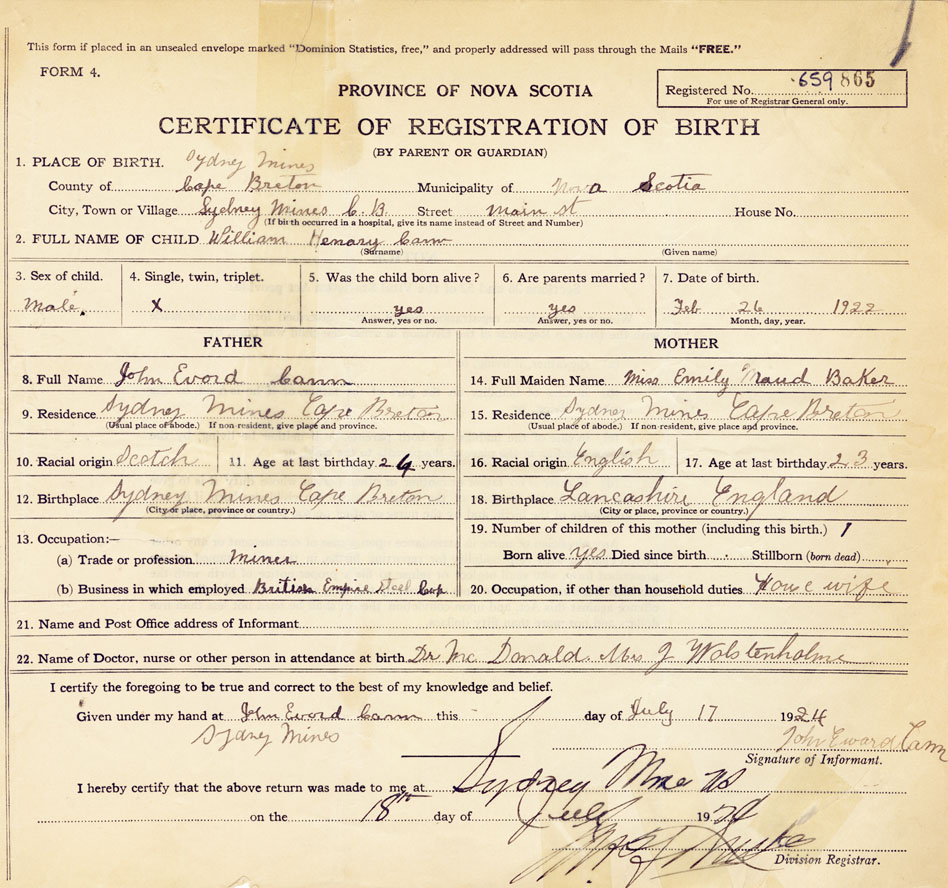 This form if placed in an unsealed envelope marked "Dominion Statistics, free," and properly addressed will pass through the Mails "FREE."
FORM 4.
Registered No. 659 865
For use of Registrar General only.
PROVINCE OF NOVA SCOTIA
CERTIFICATE OF REGISTRATION OF BIRTH
(BY PARENT OR GUARDIAN)
1. PLACE OF BIRTH. Sydney Mines
County of Cape Breton Municipality of Nova Scotia
City, Town or Village Sydney Mines C.B. Street Main st House No.
(If birth occurred in a hospital, give its name instead of Street and Number)
2. FULL NAME OF CHILD William Henary Cann
(Surname) (Given name)
3. Sex of child. 4. Single, twin, triplet. 5. Was the child born alive? 6. Are parents married? 7. Date of birth.
Male. X yes yes Feb 26 1922
Answer, yes or no. Answer, yes or no. Month, day, year.
FATHER MOTHER
8. Full Name John Evord Cann 14. Full Maiden Name Miss Emily Maud Baker
9. Residence Sydney Mines Cape Breton 15. Residence Sydney Mines Cape Breton
(Usual place of abode.) If non-resident, give place and province. (Usual place of abode.) If non-resident, give place and province.
10. Racial origin Scotch 11. Age at last birthday 24 years. 16. Racial origin English 17. Age at last birthday 23 years.
12. Birthplace Sydney Mines Cape Breton 18. Birthplace Lancashire England
(City or place, province or country.) (City or place, province or country.)
13. Occupation:— 19. Number of children of this mother (including this birth.) 1
(a) Trade or profession miner Born alive yes Died since birth Stillborn (born dead)
(b) Business in which employed British Empire Steel Corp 20. Occupation, if other than household duties House wife
21. Name and Post Office address of Informant
22. Name of Doctor, nurse or other person in attendance at birth Dr Mc Donald. Mrs J Wolstenholme
I certify the foregoing to be true and correct to the best of my knowledge and belief.
Given under my hand at John Evord Cann this day of July 17 1924
Sydney Mines John Eward Cann
Signature of Informant.
I hereby certify that the above return was made to me at Sydney Mines
on the 18th day of July 1924
Division Registrar.